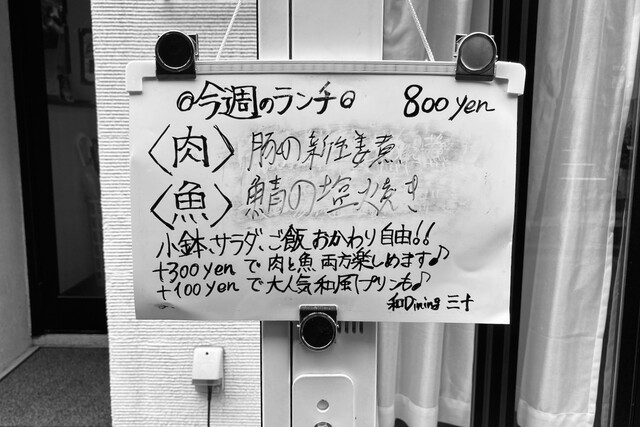 ◎今週のランチ◎ 800yen
〈肉〉 豚の新生姜煮
〈魚〉 鯖の塩焼き
小鉢、サラダ、ご飯おかわり自由!!
+300yenで肉と魚両方楽しめます♪
+100yenで大人気和風プリンも♪
和Dining 三十